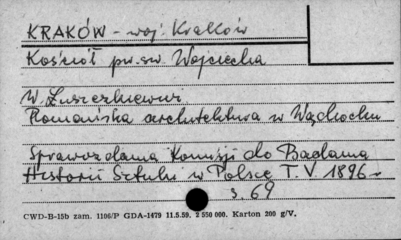 KRAKÓW - woj. Kraków
Kościół pw. sw. Wojciecha
W. Łuszczkiewicz
Romańska architektura w Wąchocku
Sprawozdania Komisji do Badania
Historii Sztuki w Polsce T. V. 1896 r
s. 69
CWD-B-15b zam. 1106/P GDA-1479 11.5.59. 2 550 000. Karton 200 g/V.